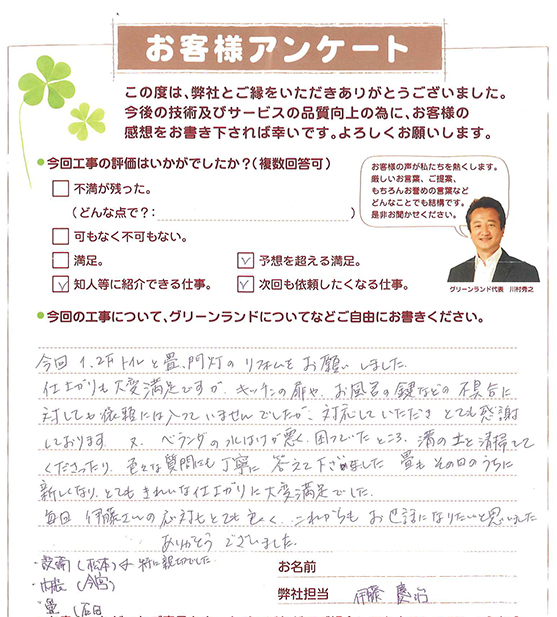 お客様アンケート
この度は、弊社とご縁をいただきありがとうございました。
今後の技術及びサービスの品質向上の為に、お客様の
感想をお書き下されば幸いです。よろしくお願いします。
●今回工事の評価はいかがでしたか？（複数回答可）
不満が残った。
（どんな点で？：）
可もなく不可もない。
満足。
予想を超える満足。
知人等に紹介できる仕事。
次回も依頼したくなる仕事。
お客様の声が私たちを熱くします。
厳しいお言葉、ご提案、
もちろんお誉めの言葉など
どんなことでも結構です。
是非お聞かせください。
グリーンランド代表 川村秀之
●今回の工事について、グリーンランドについてなどご自由にお書きください。
今回 1、2Fトイレと畳、門灯のリフォームをお願いしました。
仕上がりも大変満足ですが、キッチンの扉や、お風呂の鍵などの不具合に
対しても依頼には入っていませんでしたが、対応していただきとても感謝
しております 又、ベランダの水はけが悪く、困っていたところ、溝の土を清掃して
くださったり、色々な質問にも丁寧に答えて下さいました 畳もその日のうちに
新しくなり、とてもきれいな仕上がりに大変満足でした。
毎回 伊藤さんの応対もとても良く、これからもお世話になりたいと思いました
ありがとうございました。
・設備（松本）は特に親切でした
・内装（今宮）
・畳（石田
お名前
弊社担当 伊藤 慶治